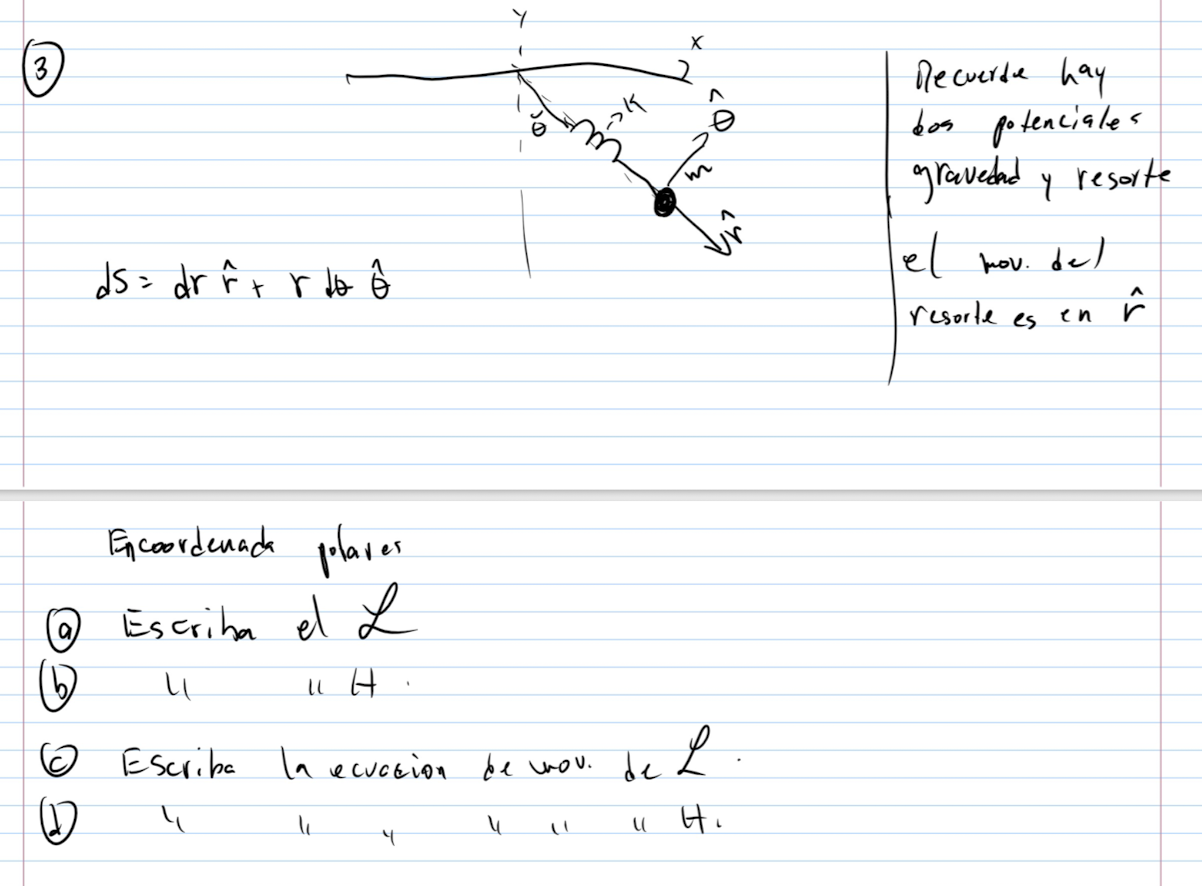 3
Y
X
θ
K
θ̂
m
r̂
Recuerde hay
dos potenciales
gravedad y resorte
el mov. del
resorte es en r̂
ds = dr r̂ + r dθ θ̂
En coordenada polares
a Escriba el ℒ
b " " H.
c Escriba la ecuacion de mov. de ℒ.
d " " " " " " H.